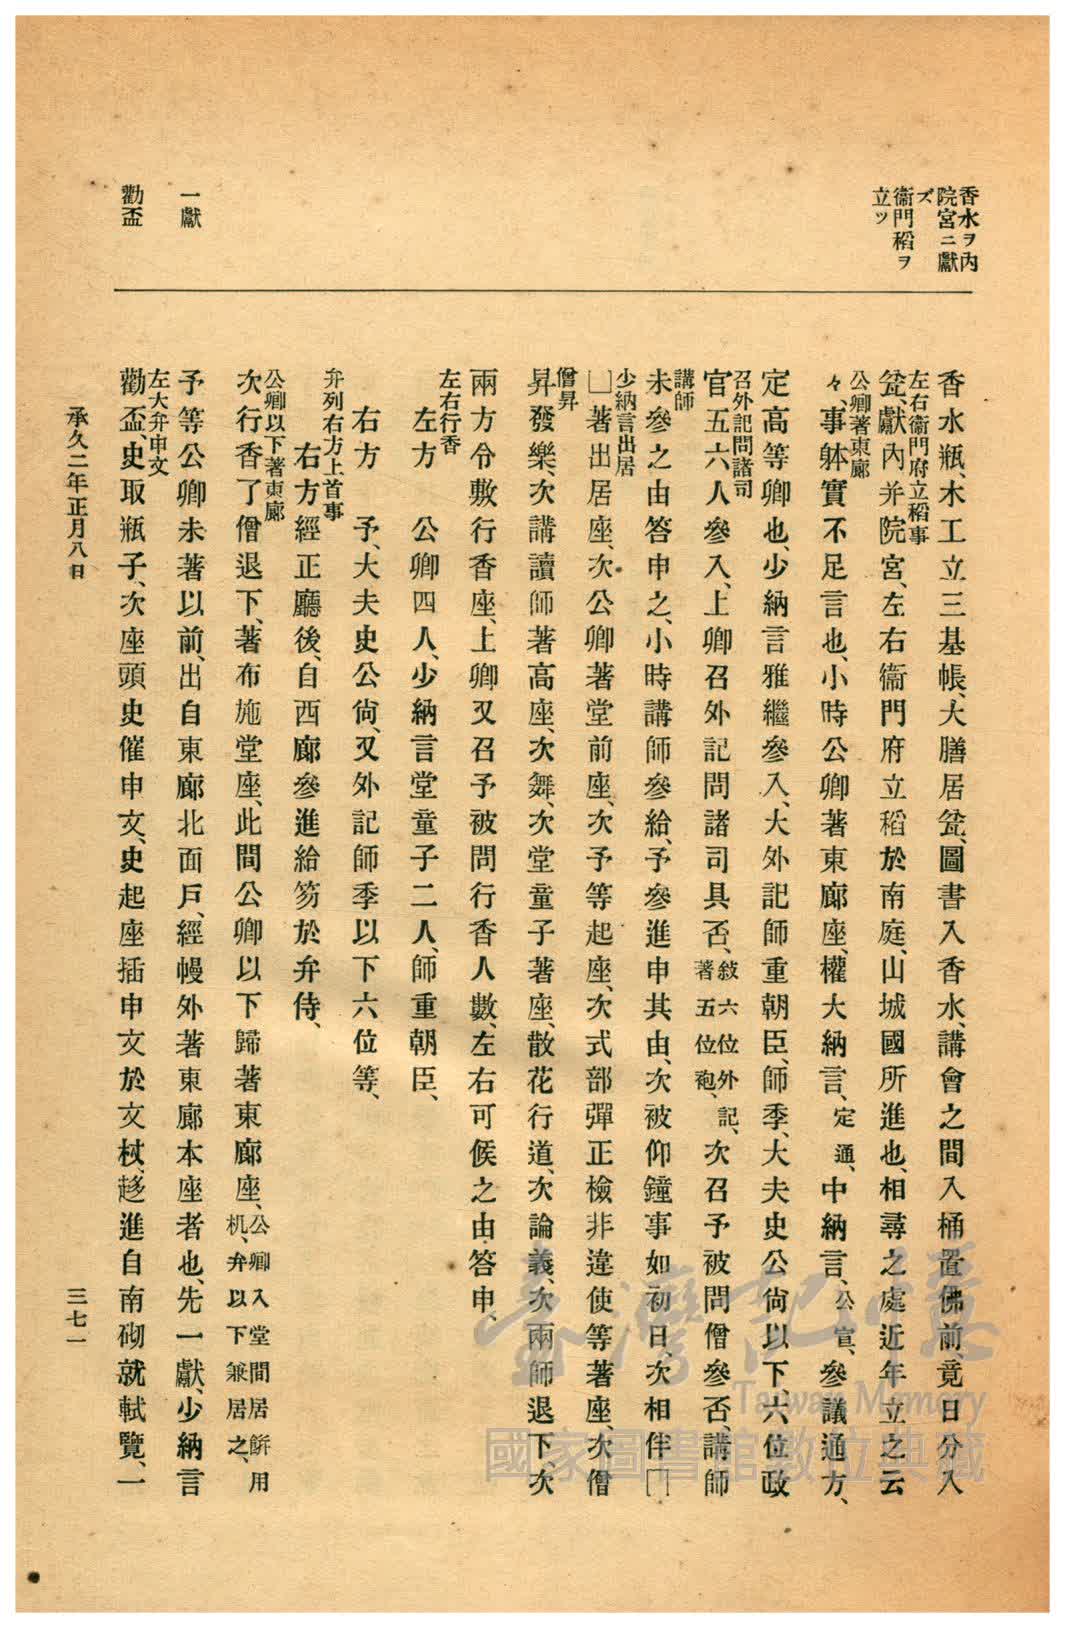 香水ヲ內
院宮ニ獻
ズ
衞門稻ヲ
立ツ
一獻
勸盃
香水瓶、木工立三基帳、大膳居瓫、圖書入香水、講會之間入桶置佛前、竟日分入
左右衞門府立稻事
瓫、獻內并院宮、左右衞門府立稻於南庭、山城國所進也、相尋之處近年立之云
公卿著東廊
々、事躰實不足言也、小時公卿著東廊座、權大納言、定通、中納言、公宣、參議通方、
定高等卿也、少納言雅繼參入、大外記師重朝臣、師季、大夫史公尙以下六位政
召外記問諸司
官五六人參入、上卿召外記問諸司具否、敍六位外記、著五位袍、次召予被問僧參否、講師
講師
未參之由答申之、小時講師參給、予參進申其由、次被仰鐘事如初日、次相伴□
少納言出居
□著出居座、次公卿著堂前座、次予等起座、次式部彈正檢非違使等著座、次僧
僧昇
昇發樂、次講讀師著高座、次舞、次堂童子著座、散花行道、次論義、次兩師退下、次
兩方令敷行香座、上卿又召予被問行香人數、左右可候之由答申、
左右行香
左方　公卿四人、少納言堂童子二人、師重朝臣、
右方　予、大夫史公尙、又外記師季以下六位等、
弁列右方上首事
右方經正廳後、自西廊參進給笏於弁侍、
公卿以下著東廊
次行香了僧退下、著布施堂座、此間公卿以下歸著東廊座、公卿入堂間居餠用机、弁以下兼居之、
予等公卿未著以前、出自東廊北面戶、經幔外著東廊本座者也、先一獻、少納言
左大弁申文
勸盃、史取瓶子、次座頭史催申文、史起座插申文於文杖、趍進自南砌就軾覽、一
承久二年正月八日
三七一
臺灣記憶
Taiwan Memory
國家圖書館數位典藏